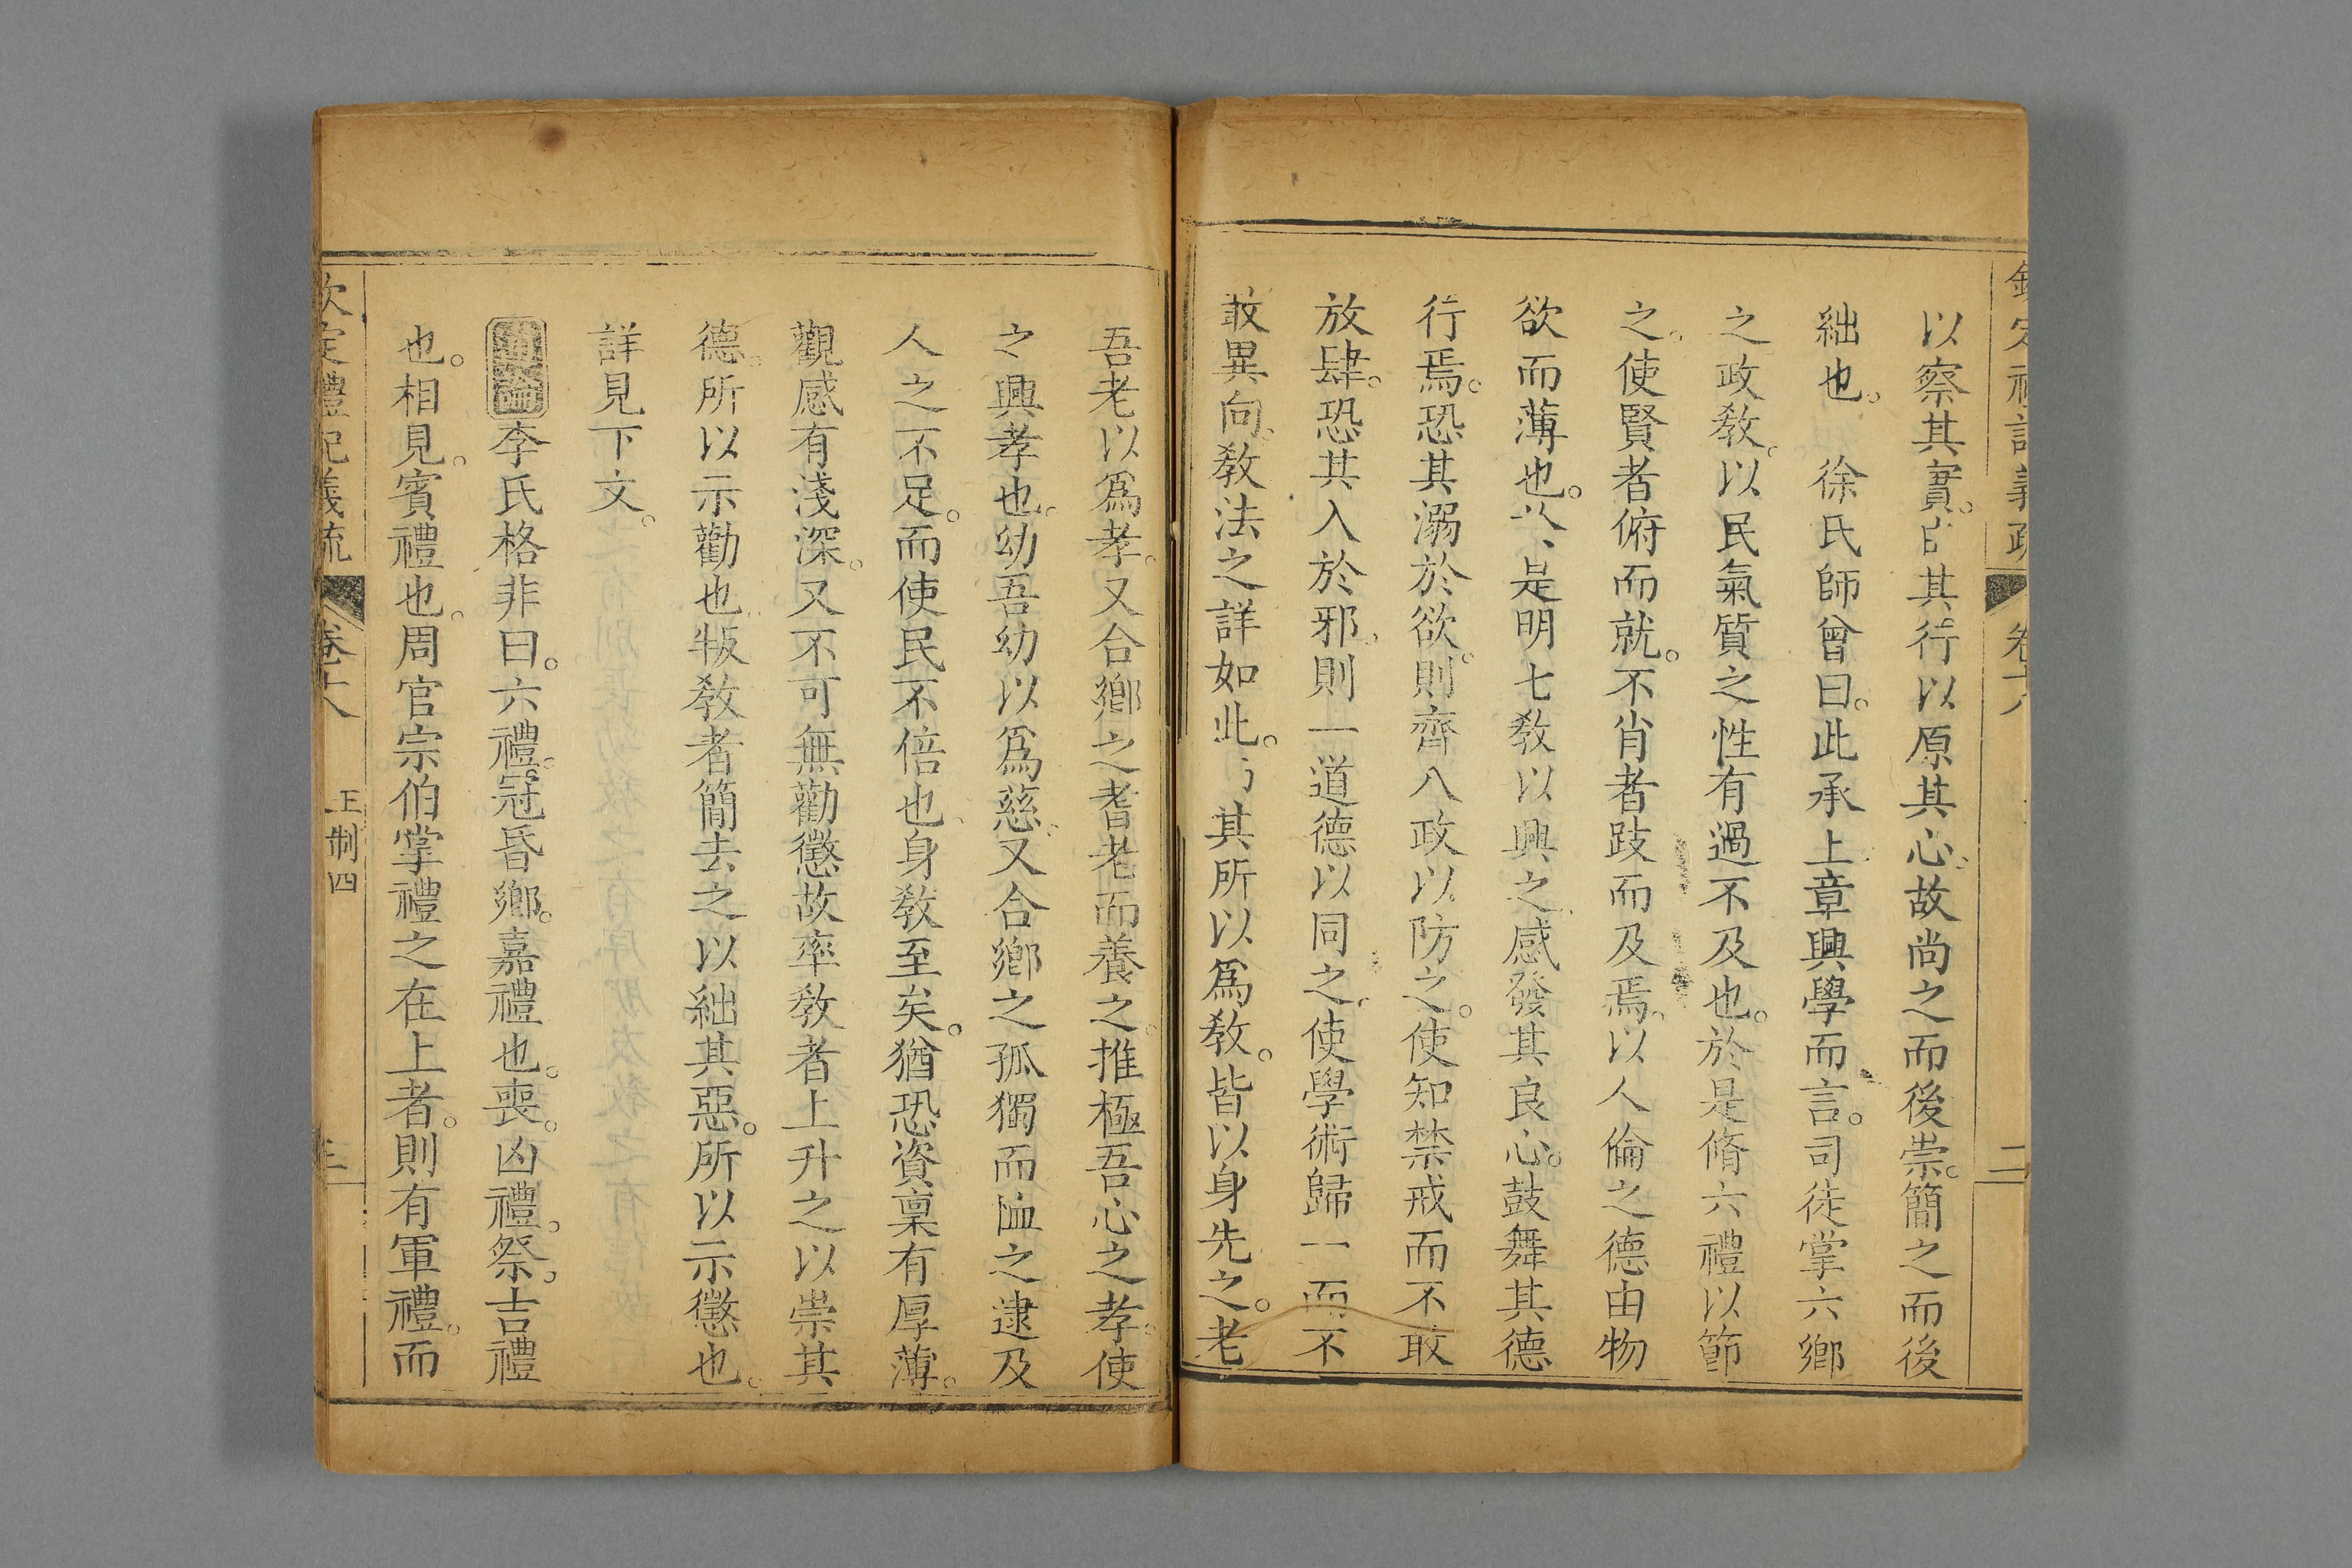 以察其實。其行以原其心。故尚之而後崇。簡之而後
絀也。　徐氏師曾曰。此承上章興學而言。司徒掌六鄉
之政教。以民氣質之性有過不及也。於是脩六禮以節
之。使賢者俯而就。不肖者跂而及焉。以人倫之德由物
欲而薄也。是明七教以興之。感發其良心。鼓舞其德
行焉。恐其溺於欲。則齊八政以防之。使知禁戒而不敢
放肆。恐其入於邪。則一道德以同之。使學術歸一而不
敢異向。教法之詳如此。其所以爲教。皆以身先之。老
吾老以爲孝。又合鄉之耆老而養之。推極吾心之孝。使
之興孝也。幼吾幼以爲慈。又合鄉之孤獨而恤之。逮及
人之不足。而使民不倍也。身教至矣。猶恐資稟有厚薄。
觀感有淺深。又不可無勸懲故率教者上升之以崇其
德。所以示勸也。叛教者簡去之以絀其惡。所以示懲也。
詳見下文。
通論李氏格非曰。六禮。冠昏鄉。嘉禮也。喪。凶禮。祭。吉禮
也。相見。賓禮也。周官宗伯掌禮之在上者。則有軍禮。而
欽定禮記義疏 卷十八 王制四 三